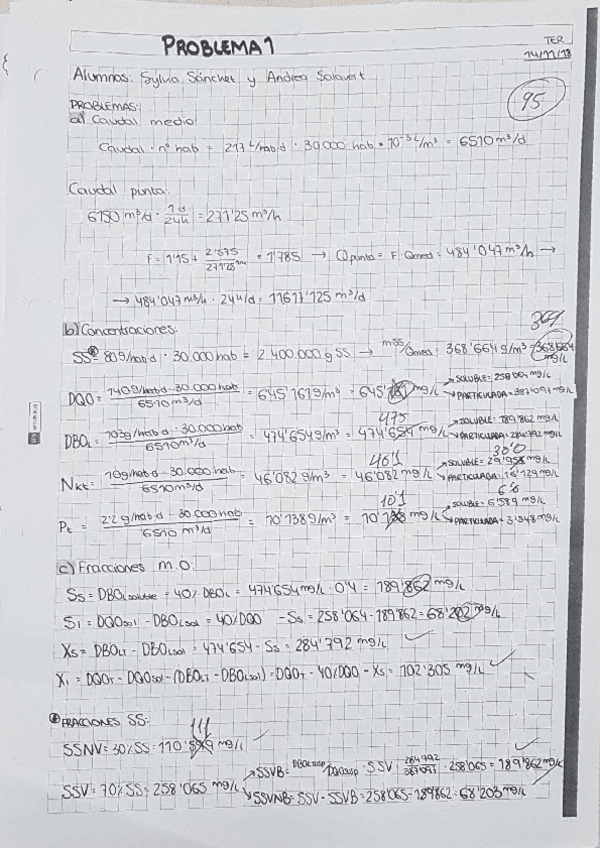 PROBLEMA 1
TER
14/11/18
Alumnos: Sylvia Sánchez y Andrea Salavert
95
PROBLEMAS:
a) Caudal medio:
Caudal · nº hab = 217 L/hab·d · 30000 hab · 10⁻³ L/m³ = 6510 m³/d
Caudal punta:
6150 m³/d · 1d/24h = 271'25 m³/h
F = 1'15 + 2'575/271'25^1/4 = 1'785 → Qpunta = F · Qmed = 484'047 m³/h →
→ 484'047 m³/h · 24h/d = 11617'125 m³/d
b) Concentraciones:
369
SS = 80 g/hab·d · 30.000 hab = 2.400.000 g SS → mSS/Qmed = 368'664 g/m³ = 368'664 mg/L
DQO = 140 g/hab·d · 30.000 hab / 6510 m³/d = 645'161 g/m³ = 645'161 mg/L → SOLUBLE = 258'064 mg/L
→ PARTICULADA = 387'097 mg/L
475
DBOL = 103 g/hab·d · 30.000 hab / 6510 m³/d = 474'654 g/m³ = 474'654 mg/L → SOLUBLE = 189'862 mg/L
→ PARTICULADA = 284'792 mg/L
46'1 30'0
Nkt = 10 g/hab·d · 30.000 hab / 6510 m³/d = 46'082 g/m³ = 46'082 mg/L → SOLUBLE = 29'953 mg/L
→ PARTICULADA = 16'129 mg/L
10'1 6'6
Pt = 2'2 g/hab·d · 30000 hab / 6510 m³/d = 10'138 g/m³ = 10'138 mg/L → SOLUBLE = 6'589 mg/L
→ PARTICULADA = 3'548 mg/L
c) Fracciones M.O:
Ss = DBOL soluble = 40% DBOL = 474'654 mg/L · 0'4 = 189'862 mg/L
SI = DQOsol - DBOLsol = 40% DQO - Ss = 258'064 - 189'862 = 68'202 mg/L
Xs = DBOLT - DBOLsol = 474'654 - Ss = 284'792 mg/L
XI = DQOT - DQOsol - (DBOLT - DBOLsol) = DQOT - 40% DQO - Xs = 102'305 mg/L
FRACCIONES SS:
111
SSNV = 30% SS = 110'599 mg/L
SSV = 70% SS = 258'065 mg/L → SSVB = DBOLsusp/DQOsusp · SSV = 284'792/387'097 · 258'065 = 189'862 mg/L
→ SSVNB = SSV - SSVB = 258'065 - 189'862 = 68'203 mg/L